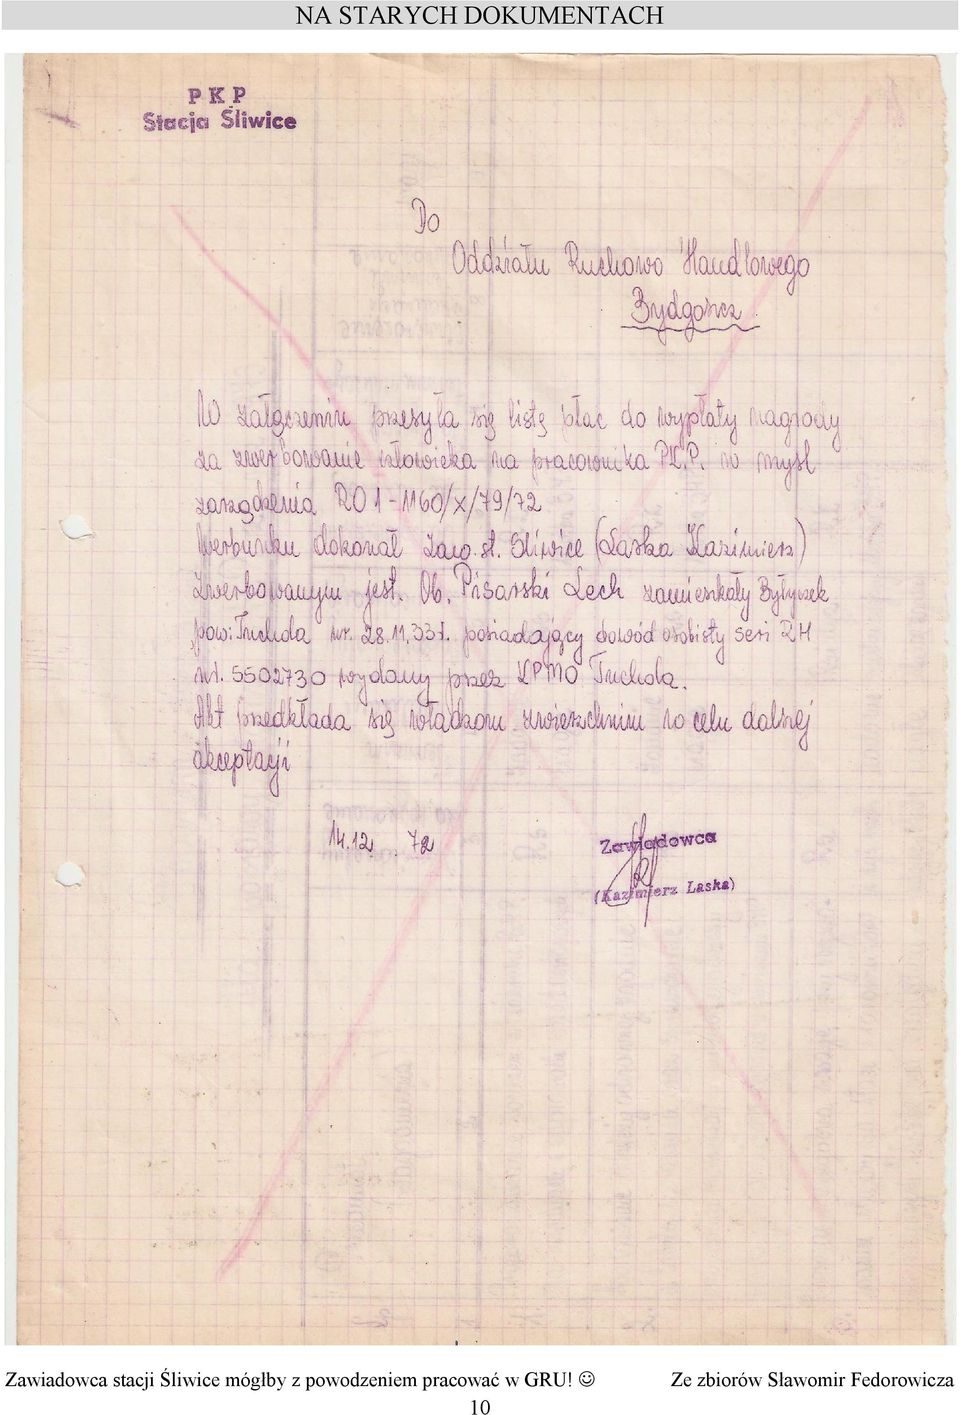 NA STARYCH DOKUMENTACH
P K P
Stacja Śliwice
Do
Oddziału Ruchowo Handlowego
Bydgoszcz.
W załączeniu przesyła się listę płac do wypłaty nagrody
za zwerbowanie człowieka na pracownika P.K.P. w myśl
zarządzenia RO1-1160/X/79/72
Werbunku dokonał Zaw. st. Śliwice (Laska Kazimierz)
Zwerbowanym jest. Ob. Pisarski Lech zamieszkały
pow: Tuchola ur. 28.11.33r. posiadający dowód osobisty seri ZH
nr. 5502730 wydany przez KPMO Tuchola.
Akt przedkłada się władzom zwierzchnim w celu dalszej
akceptacji
14.12 72
Zawiadowca
(Kazimierz Laska)
Zawiadowca stacji Śliwice mógłby z powodzeniem pracować w GRU! ☺ Ze zbiorów Sławomir Fedorowicza
10